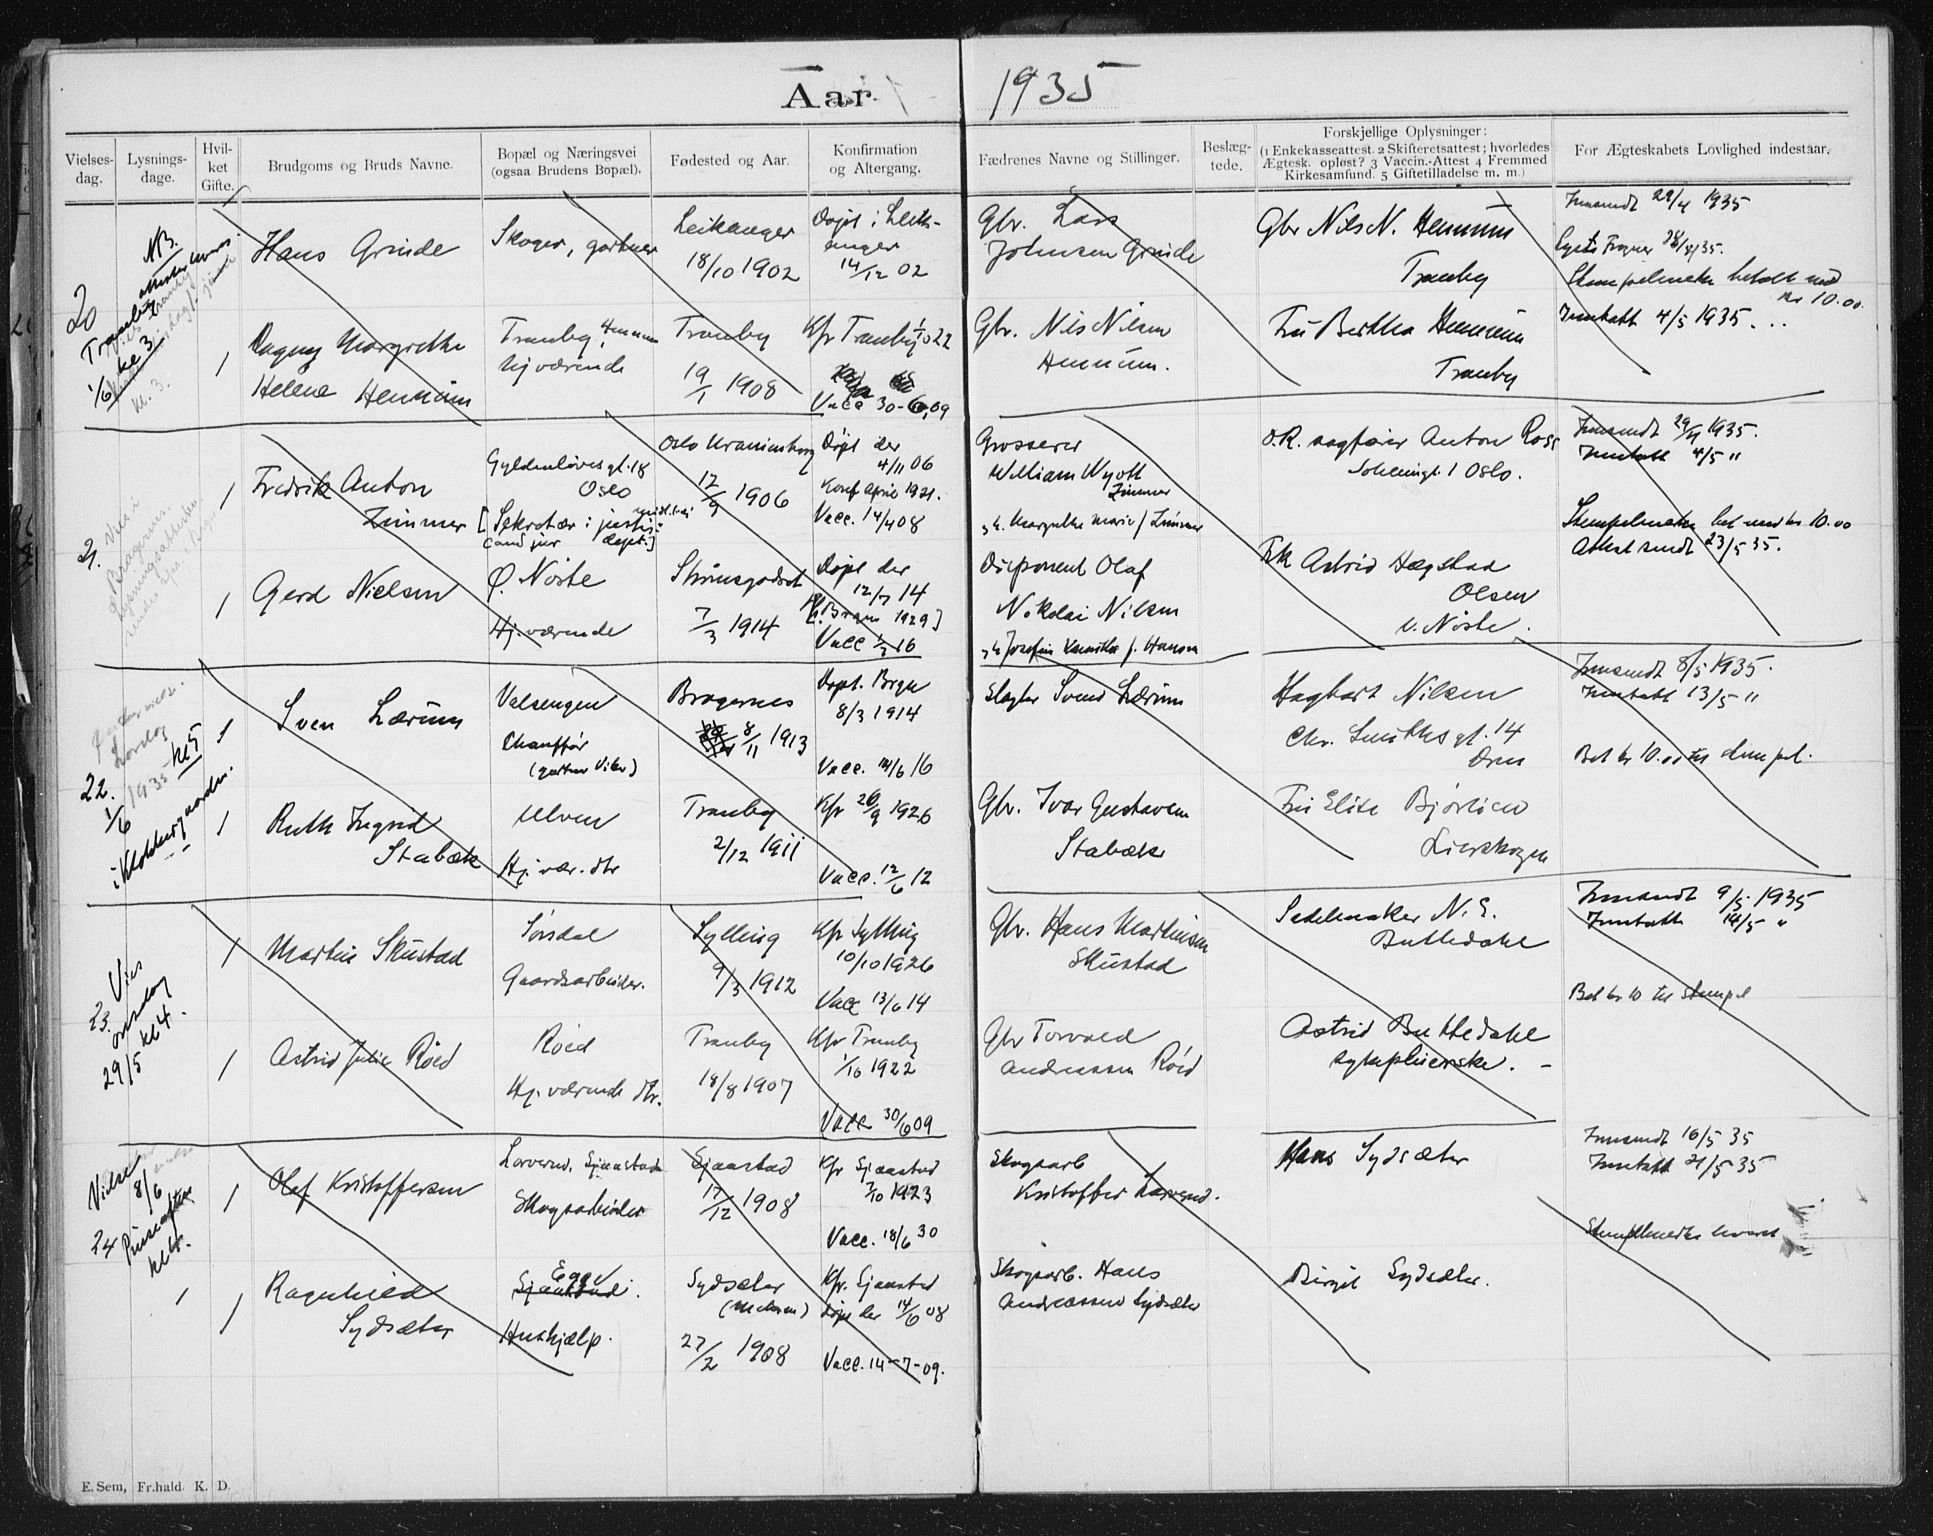 Aar 1935
Vielses-dag.
Lysnings-dage.
Hvil-ket Gifte.
Brudgoms og Bruds Navne.
Bopæl og Næringsvei
(ogsaa Brudens Bopæl).
Fødested og Aar.
Konfirmation
og Altergang.
Fædrenes Navne og Stillinger.
Beslæg-tede.
Forskjellige Oplysninger:
(1 Enkekasseattest. 2 Skifteretsattest; hvorledes
Ægtesk. opløst? 3 Vaccin.-Attest 4 Fremmed
Kirkesamfund. 5 Giftetilladelse m. m.)
For Ægteskabets Lovlighed indestaar.
20
NB.
Tranby
1/6 kl. 3
Hans Grinde
Skoger, gartner
Leikanger
18/10 1902
Døpt i Leik-
anger
14/12 02
Gbr. Lars
Johnsen Grinde
Gbr Nils N. Hennum
Tranby
Innsendt 29/4 1935
Stempelmerke betalt med
kr 10.00
1
Dagny Margrethe
Helene Hennum
Tranby, Hennum
Hj.værende
Tranby
19/1 1908
Kfr Tranby 1/10 22
Vacc 30-6,09
Gbr. Nils Nilsen
Hennum.
Fru Bertha Hennum
Tranby
Inntatt 4/5 1935
21.
Vies i
Bragernes.
1
Fredrik Anton
Zimmer
Gyldenløvesgt. 18
Oslo
[Sekretær i justis-
cand jur dept.]
Oslo Uranienborg
12/9 1906
Døpt der
4/11 06
Konf april 1921.
Vacc. 14/4 08
Grosserer
William Wyott
Zimmer
O.R. sagfører Anton Ross
1 Oslo.
Innsendt 29/4 1935.
Inntatt 4/5 "
Stempelmerke bet med kr 10.00
Attest sendt 23/5 35.
1
Gerd Nielsen
Ø. Nøste
Hj.værende
Strømsgodset
7/3 1914
Døpt der
12/7 14
[Kf. Bragn 1929]
Vacc 1/3 16
Disponent Olaf
Nikolai Nilsen
Frk Astrid Hægstad
Olsen
v. Nøste.
22.
Lørdag
1/6 1935 kl 5
i Klokkergaarden.
1
Sven Lærum
Valsengen
Chauffør
Bragernes
8/11 1913
Døpt. Bragn
8/3 1914
Vacc. 14/6 16
Slagter Svend Lærum
Hagbart Nilsen
Chr. Smithsgt. 14
Drm
Innsendt 8/5 1935.
Inntatt 13/5 "
Bet kr 10.00 til stempel.
1
Ruth Ingrid
Stabæk
Ulven
Hj. vær. dtr
Tranby
2/12 1911
Kfr 26/9 1926
Vacc. 12/6 12
Gbr. Ivar Gustavsen
Stabæk
Fru Elise Bjørlien
Lierskogen
23.
Vies
onsdag
29/5 kl 4.
1
Martin Skustad
Sørsdal
Gaardsarbeider.
Sylling
9/3 1912
Kfr Sylling
10/10 1926
Vacc 13/6 14
Gbr. Hans Martinsen
Skustad
Sadelmaker N. E.
Buttedahl
Innsendt 9/5 1935
Inntatt 14/5 "
Bet kr 10 til stempel
1
Astrid Julie Røed
Røed
Hj. værende dtr.
Tranby
18/8 1907
Kfr Tranby
1/10 1922
Vacc 30/6 09
Gbr Torvald
Andreassen Røed
Astrid Buttedahl
sykepleierske. -
24
Vielse
8/6
Pinseaften
kl 4.
1
Olaf Kristoffersen
Sjaastad
Skogsarbeider
Sjaastad
17/12 1908
Kfr Sjaastad
7/10 1923
Vacc. 18/6 30
Skogsarb
Kristoffer
Hans Sydsæter
Innsendt 16/5 35
Inntatt 21/5 35
Stempelmerke
1
Ragnhild
Sydsæter
Egge
Sjaastad.
Hushjælp.
Sydsæter
27/2 1908
Kfr. Sjaastad
Døpt der 14/6 08
Vacc. 14-7-09.
Skogsarb. Hans
Andreassen Sydsæter
Birgit Sydsæter.
E. Sem, Fr.hald. K. D.